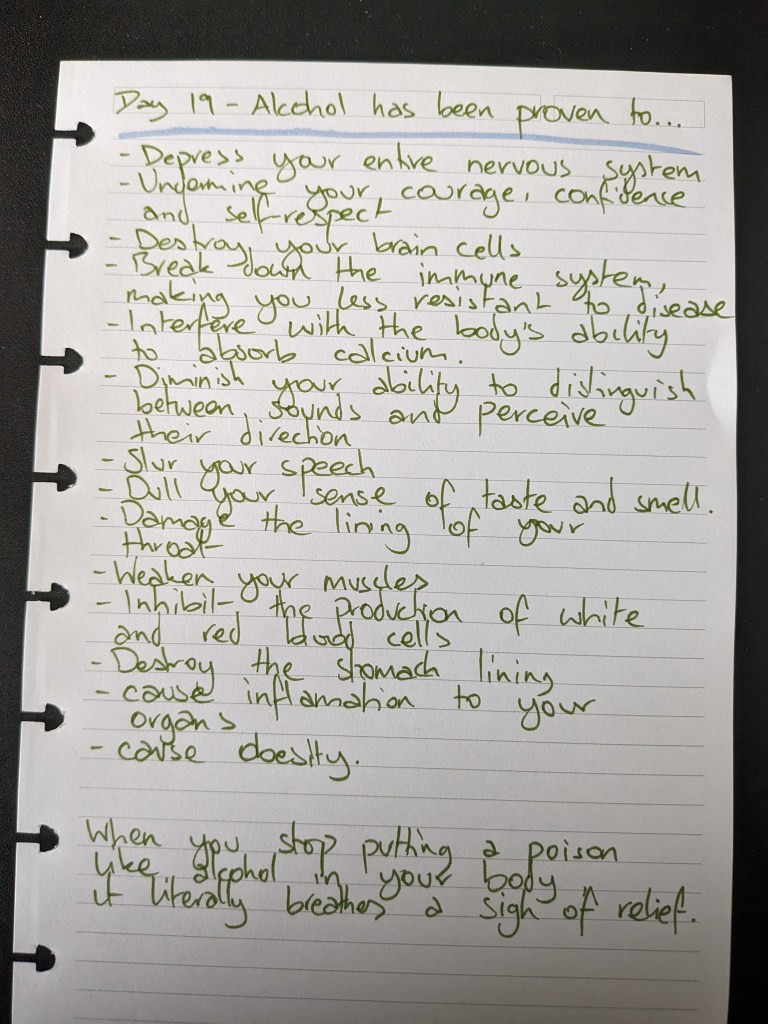 Day 19 - Alcohol has been proven to...
- Depress your entire nervous system
- Undermine your courage, confidence
and self-respect
- Destroy your brain cells
- Break down the immune system,
making you less resistant to disease
- Interfere with the body's ability
to absorb calcium.
- Diminish your ability to distinguish
between sounds and perceive
their direction
- Slur your speech
- Dull your sense of taste and smell.
- Damage the lining of your
throat
- Weaken your muscles
- Inhibit the production of white
and red blood cells
- Destroy the stomach lining
- cause inflamation to your
organs
- cause obesity.
When you stop putting a poison
like alcohol in your body
it literally breathes a sigh of relief.